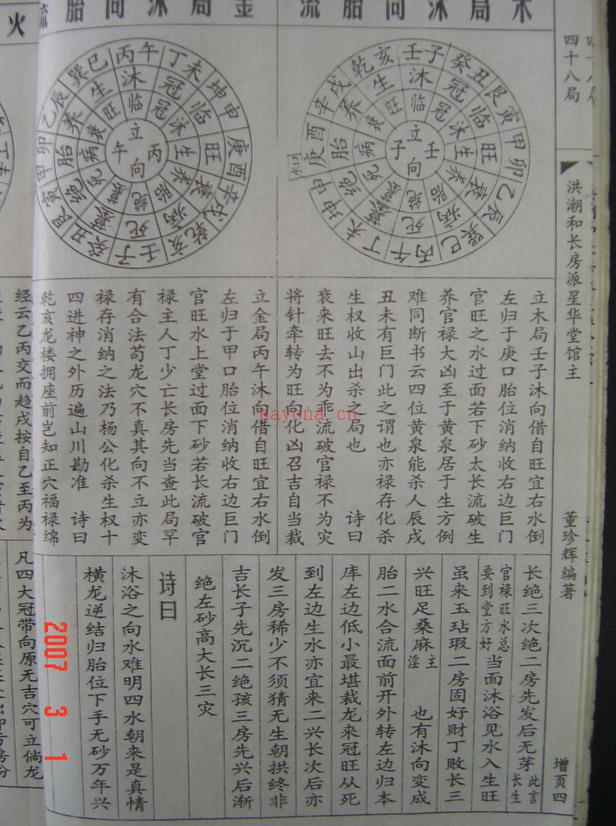 木局沐向胎流
金局沐向胎流
火
四十八局
洪潮和长房派星华堂馆主
董珍辉编著
增页四
壬子癸丑艮寅甲卯乙辰巽巳丙午丁未坤申庚酉辛戌乾亥
立壬向子
丙午丁未坤申庚酉辛戌乾亥壬子癸丑艮寅甲卯乙辰巽巳
立丙向午
立木局壬子沐向借自旺宜右水倒
左归于庚口胎位消纳收右边巨门
官旺之水过面若下砂太长流破生
养官禄大凶至于黄泉居于生方例
难同断书云四位黄泉能杀人辰戌
丑未有巨门此之谓也亦禄存化杀
生权收山出杀之局也 诗曰
衰来旺去不为乖流破官禄不为灾
将针牵转为旺向化凶召吉自当裁
立金局丙午沐向借自旺宜右水倒
左归于甲口胎位消纳收右边巨门
官旺水上堂过面下砂若长流破官
禄主人丁少亡长房先当查此局罕
有合法苟龙穴不真其向不立亦变
禄存消纳之法乃杨公化杀生权十
四进神之外历遍山川勘准 诗曰
乾亥龙楼拥座前岂知正穴福禄绵
经云乙丙交而趋戌按自乙至丙为
长绝三次绝二房先发后无芽 此言长生
官禄旺水总要到堂方好 当面沐浴见水入生旺
虽来玉玷瑕二房固好财丁败长三
兴旺足桑麻 主淫 也有沐向变成
胎二水合流面前开外转左边归本
库左边低小最堪裁龙来冠旺从死
到左边生水亦宜来二兴长次后亦
发三房稀少不须猜无生朝拱终非
吉长子先沉二绝孩三房先兴后渐
绝左砂高大长三灾
诗曰
沐浴之向水难明四水朝来是真情
横龙逆结归胎位下手无砂万年兴
凡四大冠带向原无吉穴可立倘龙
hayona.cn
2007 3 1